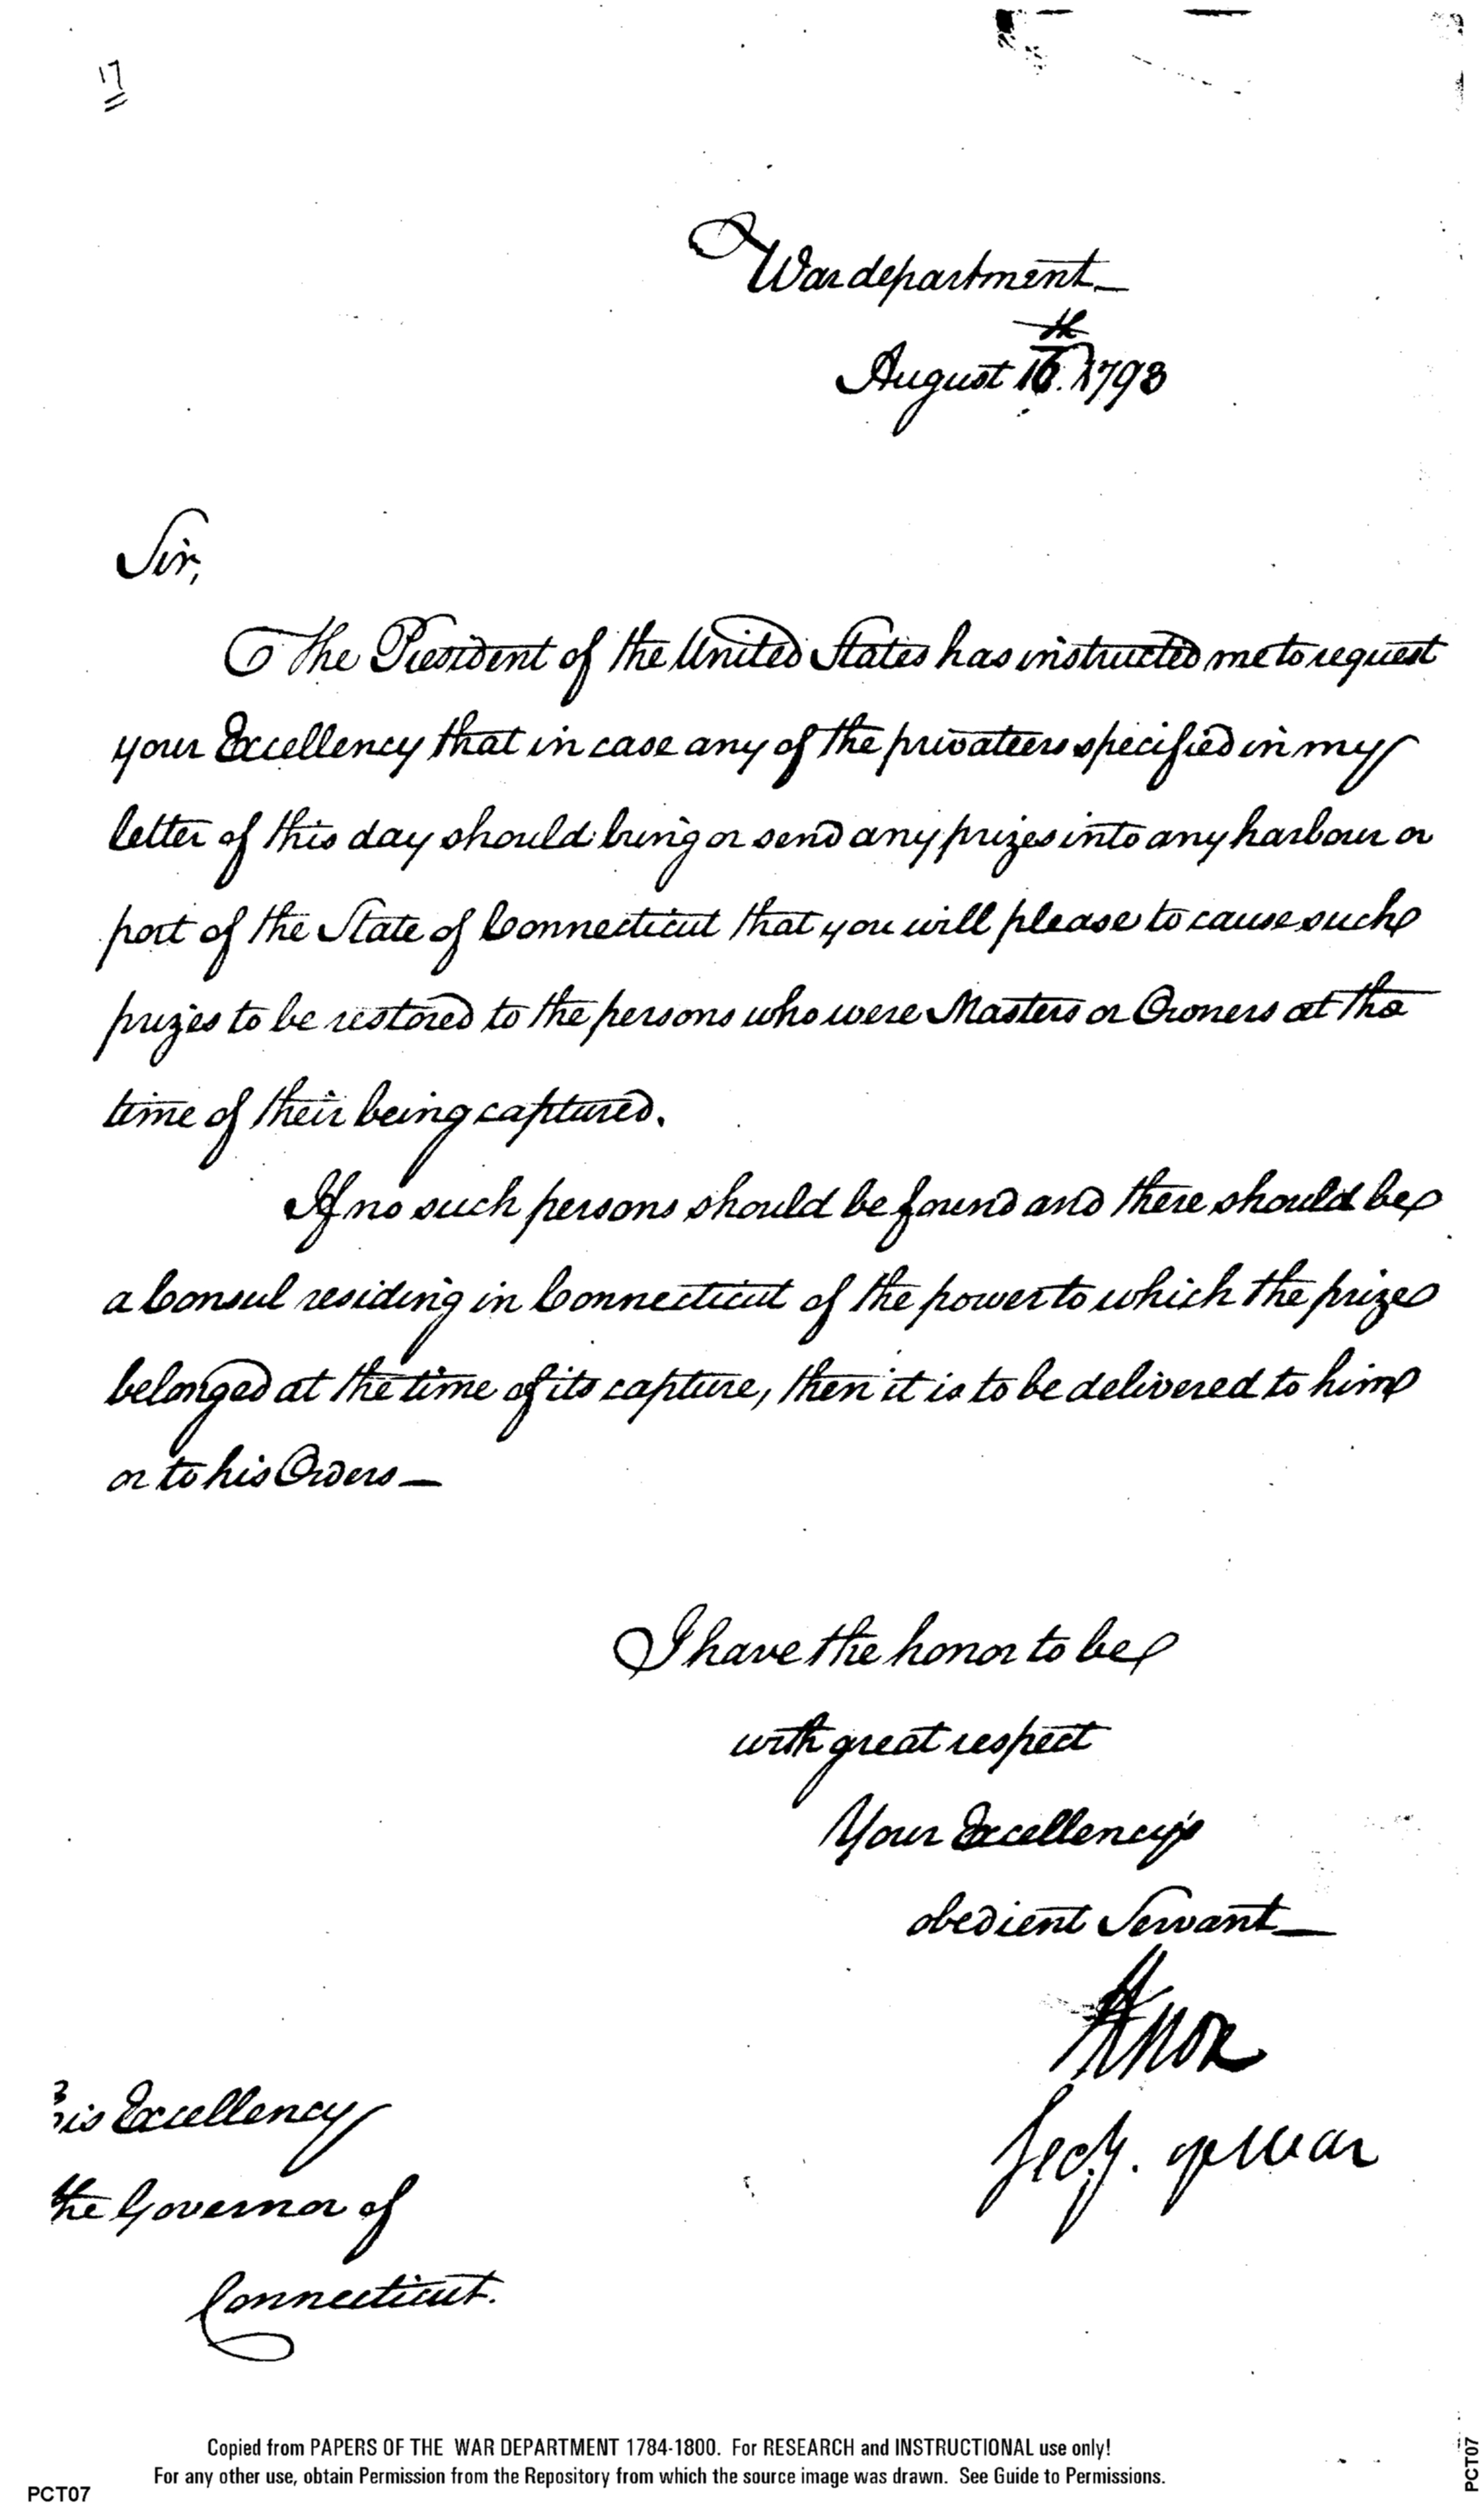 17
War department
August 16th. 1793
Sir,
The President of the United States has instructed me to request
your Excellency that in case any of the privateers specified in my
letter of this day should bring or send any prizes into any harbour or
port of the State of Connecticut that you will please to cause such
prizes to be restored to the persons who were Masters or Owners at the
time of their being captured.
If no such persons should be found and there should be
a Consul residing in Connecticut of the power to which the prize
belonged at the time of its capture, then it is to be delivered to him
or to his Orders—
I have the honor to be
with great respect
Your Excellency's
obedient Servant—
HKnox
Secy. of War
His Excellency
the Governor of
Connecticut.
Copied from PAPERS OF THE WAR DEPARTMENT 1784-1800. For RESEARCH and INSTRUCTIONAL use only!
For any other use, obtain Permission from the Repository from which the source image was drawn. See Guide to Permissions.
PCT07
PCT07